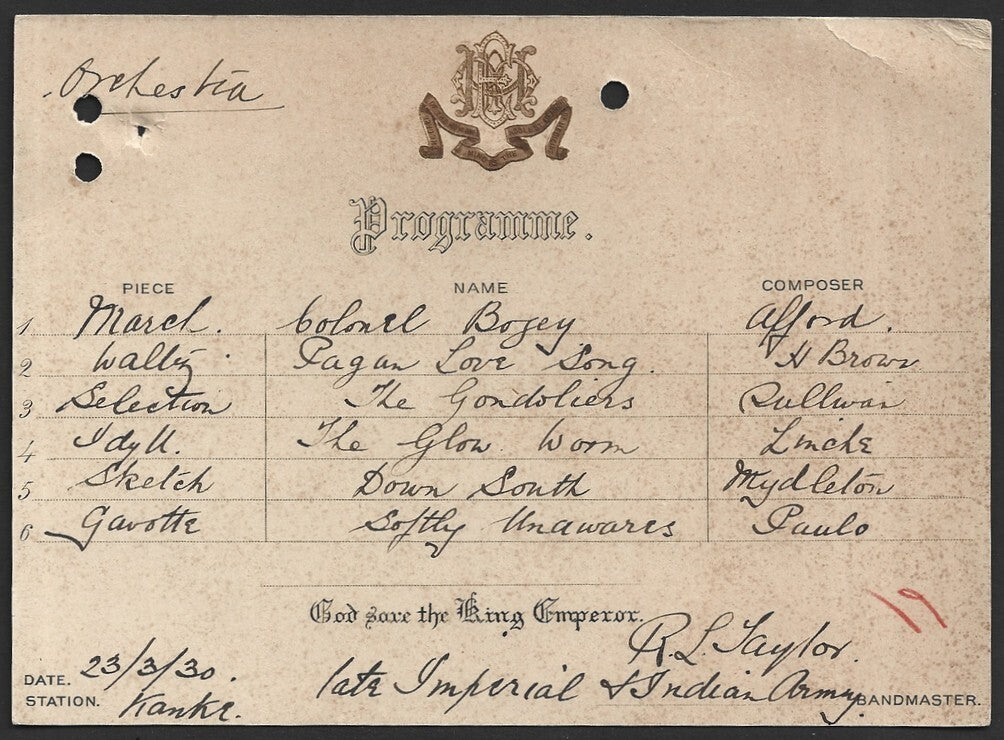 Orchestra
Programme.
PIECE NAME COMPOSER
1 March. Colonel Bogey Alford.
2 Waltz. Pagan Love Song. N H Brown
3 Selection The Gondoliers Sullivan
4 Idyll. The Glow Worm Lincke
5 Sketch Down South Mydleton
6 Gavotte Softly Unawares Paulo
God save the King Emperor.
R. L Taylor.
DATE. 23/3/30. late Imperial & Indian Army BANDMASTER.
STATION. Kanke.